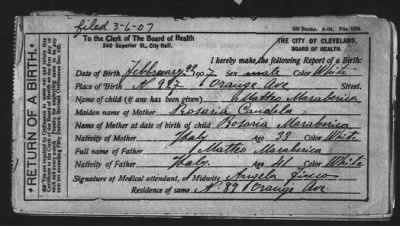 filed 3-6-07
500 Books.
To the Clerk of The Board of Health
240 Superior St., City Hall.
THE CITY OF CLEVELAND,
BOARD OF HEALTH.
RETURN OF A BIRTH.
I hereby make the following Report of a Birth:
Date of Birth Febbruary 22 1907 Sex male Color White
Place of Birth N 987 Orange Ave Street
Name of child (if any has been given) Matteo Maraberica
Maiden name of Mother Rosaria Candela
Name of Mother at date of birth of child Rosaria Maraberica
Nativity of Mother Italy Age 33 Color White
Full name of Father Matteo Maraberica
Nativity of Father Italy Age 41 Color White
Signature of Medical attendant, of Midwife Angela
Residence of same N. 89 Orange Ave